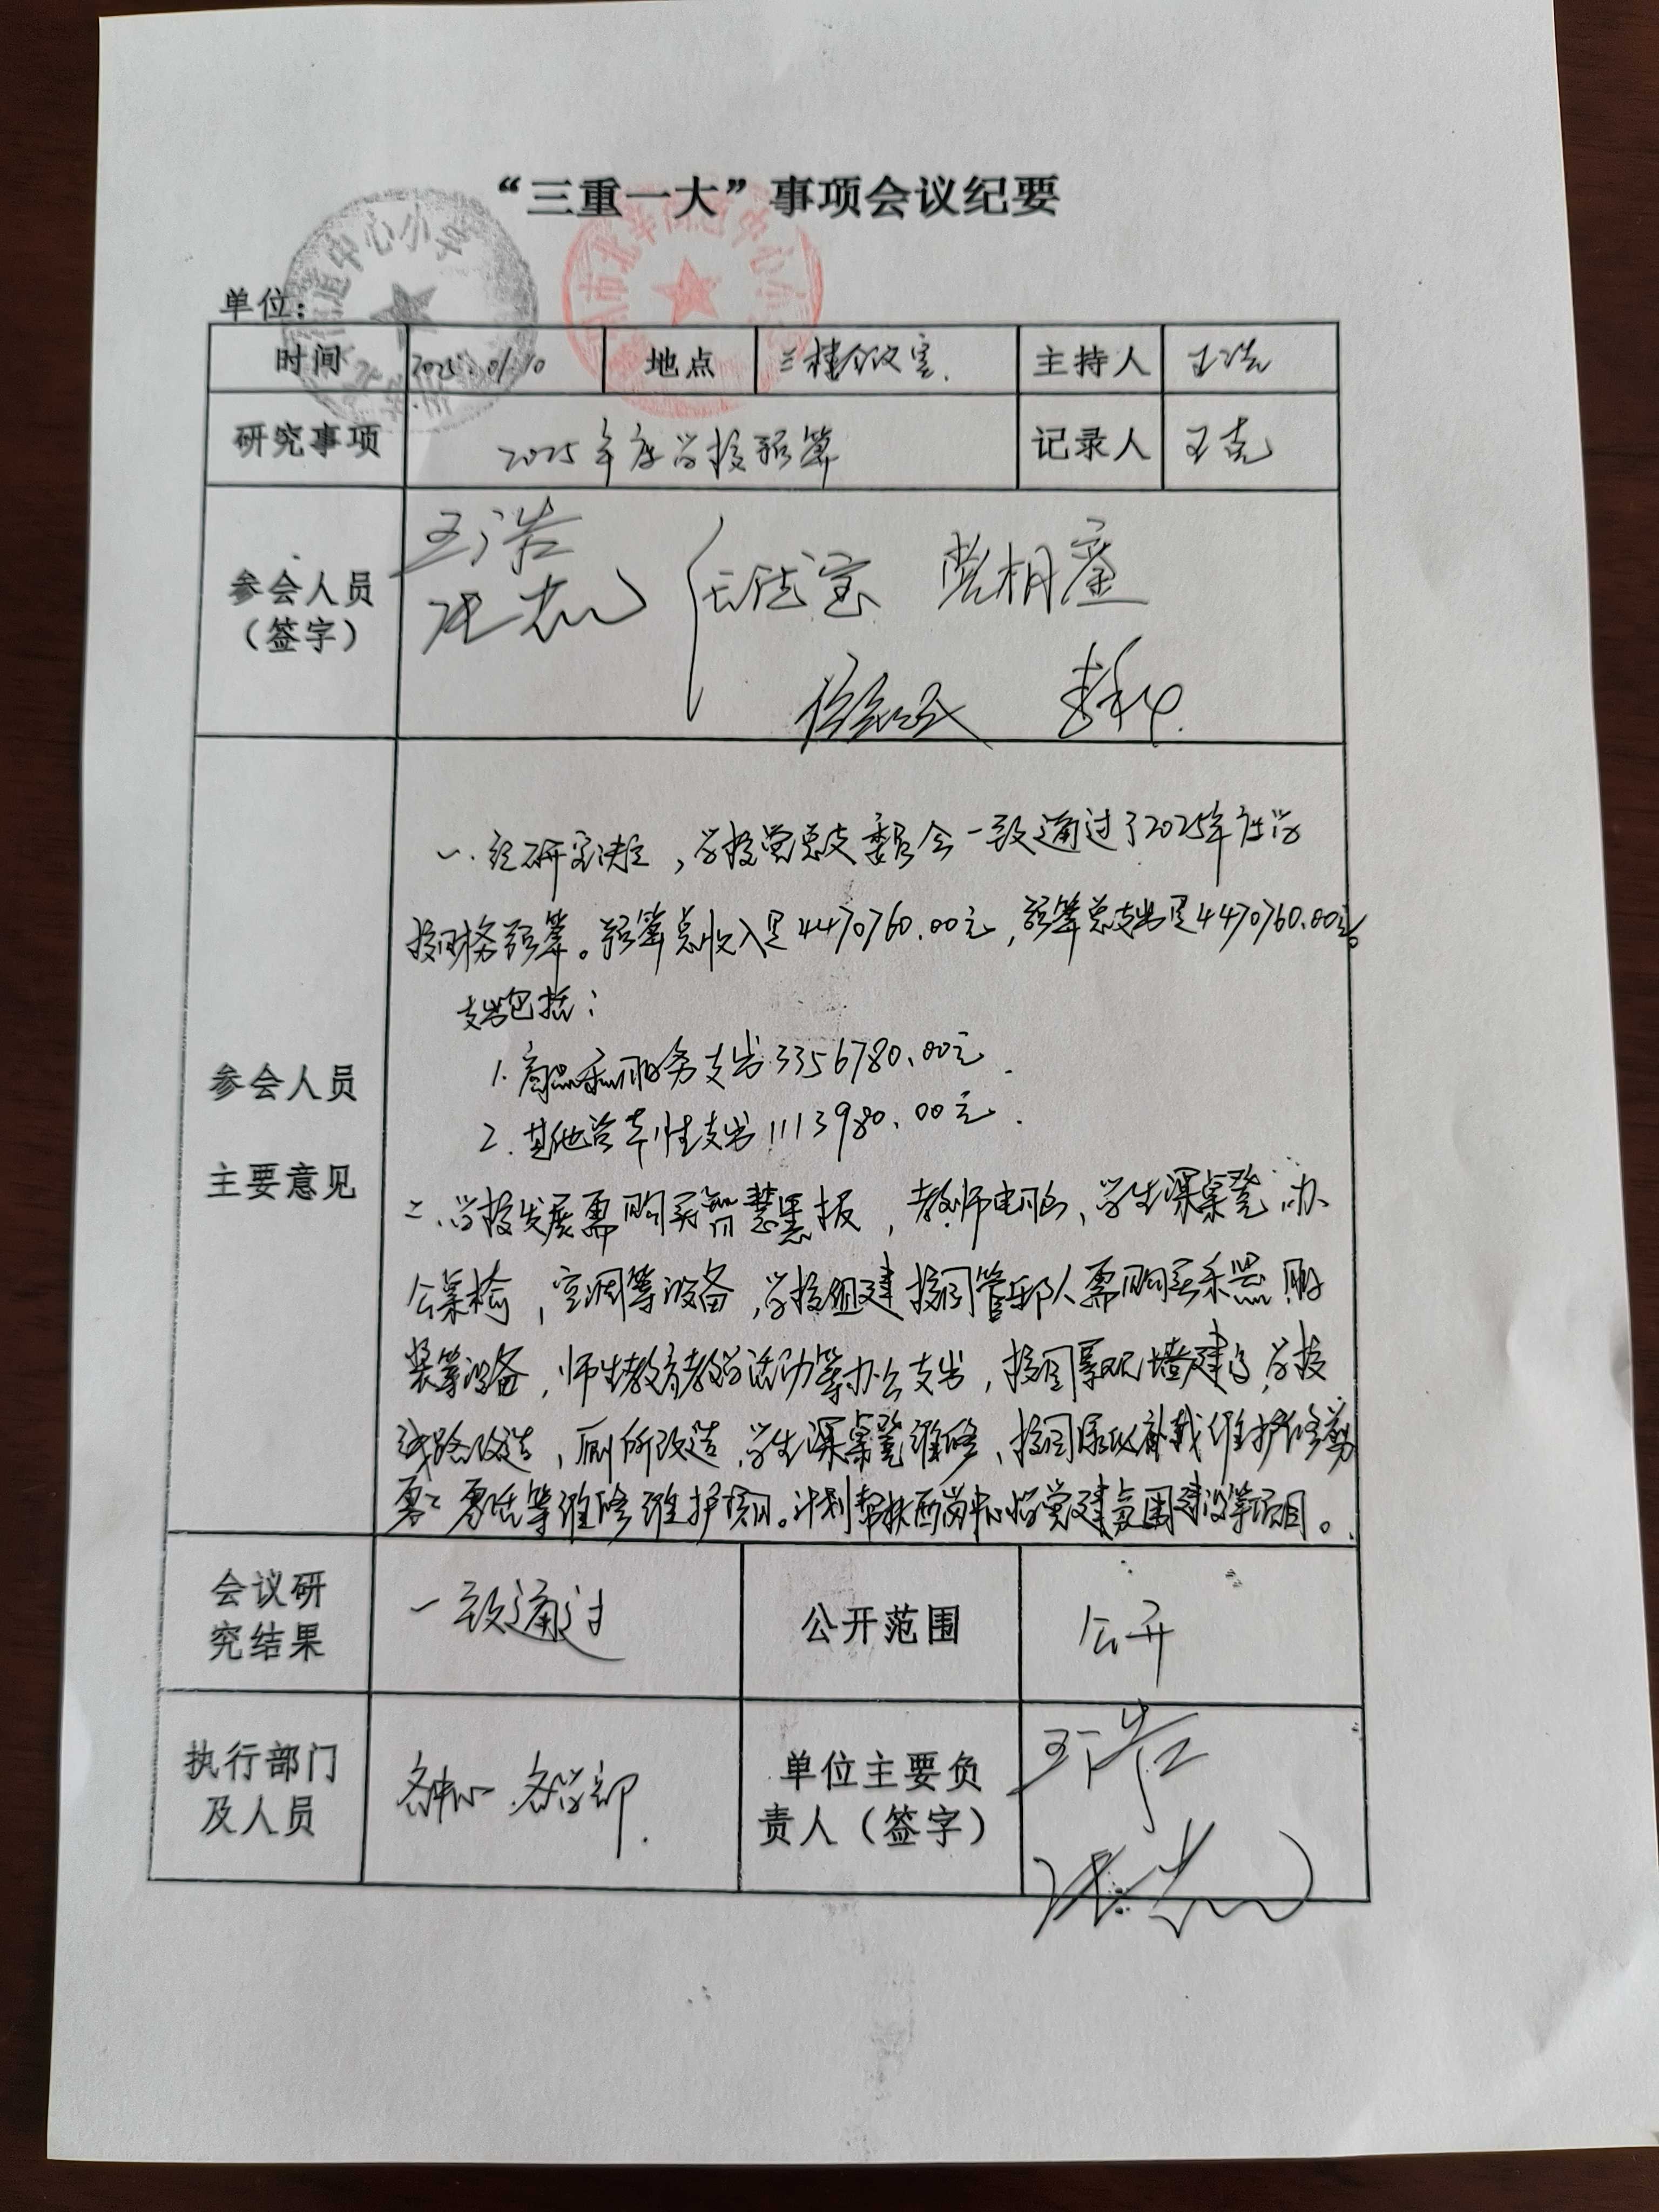 “三重一大”事项会议纪要
单位：
时间 2025.01.10 地点 三楼会议室. 主持人 王浩
研究事项 2025年度学校预算 记录人 王克
参会人员 王浩
（签字）
一、经研究决定，学校党总支委员会一致通过了2025年度学
校财务预算。预算总收入是4470760.00元，预算总支出是4470760.00元。
支出包括：
1. 商品和服务支出3356780.00元.
2. 其他资本性支出1113980.00元.
参会人员
主要意见
二、学校发展需购买智慧黑板，教师电脑、学生课桌凳、办
公桌椅，空调等设备，学校组建校园管乐队需购买乐器 服
装等设备，师生教育教学活动等办公支出，校园景观墙建设、学校
线路改造，厕所改造、学生课桌凳维修、校园绿化补栽维护修剪
零工零活等维修维护项目。计划帮扶西岗中心小学党建氛围建设等项目。
会议研究结果 一致通过 公开范围 公开
执行部门及人员 各中心、各学部. 单位主要负责人（签字） 王浩